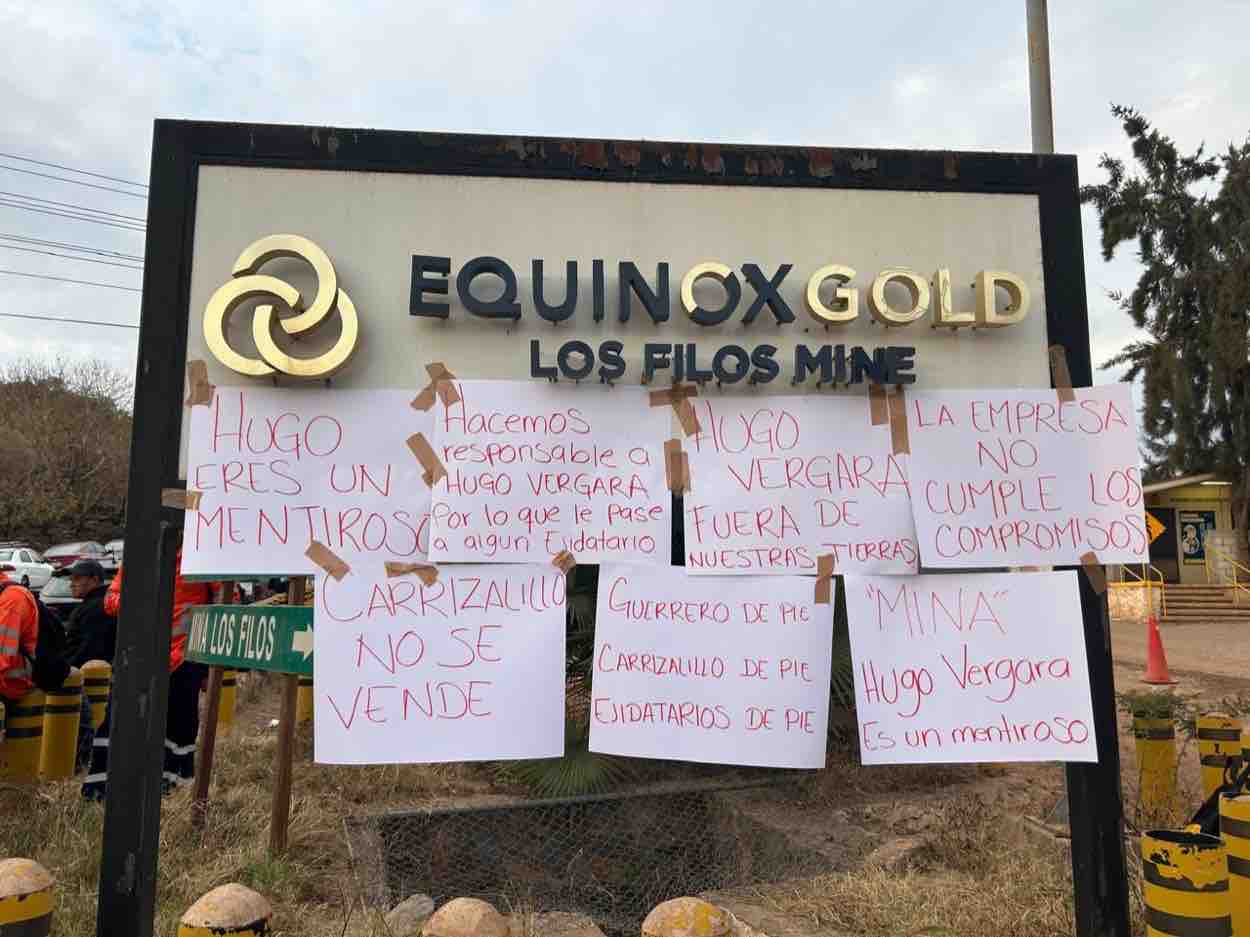 EQUINOX GOLD
LOS FILOS MINE
HUGO
ERES UN
MENTIROSO
Hacemos
responsable a
HUGO VERGARA
Por lo que le Pase
a algun Ejidatario
HUGO
VERGARA
FUERA DE
NUESTRAS TIERRAS
LA EMPRESA
NO
CUMPLE LOS
COMPROMISOS
CARRIZALILLO
NO SE
VENDE
GUERRERO DE PIE
CARRIZALILLO DE PIE
EJIDATARIOS DE PIE
"MINA"
Hugo Vergara
Es un mentiroso
MINA LOS FILOS